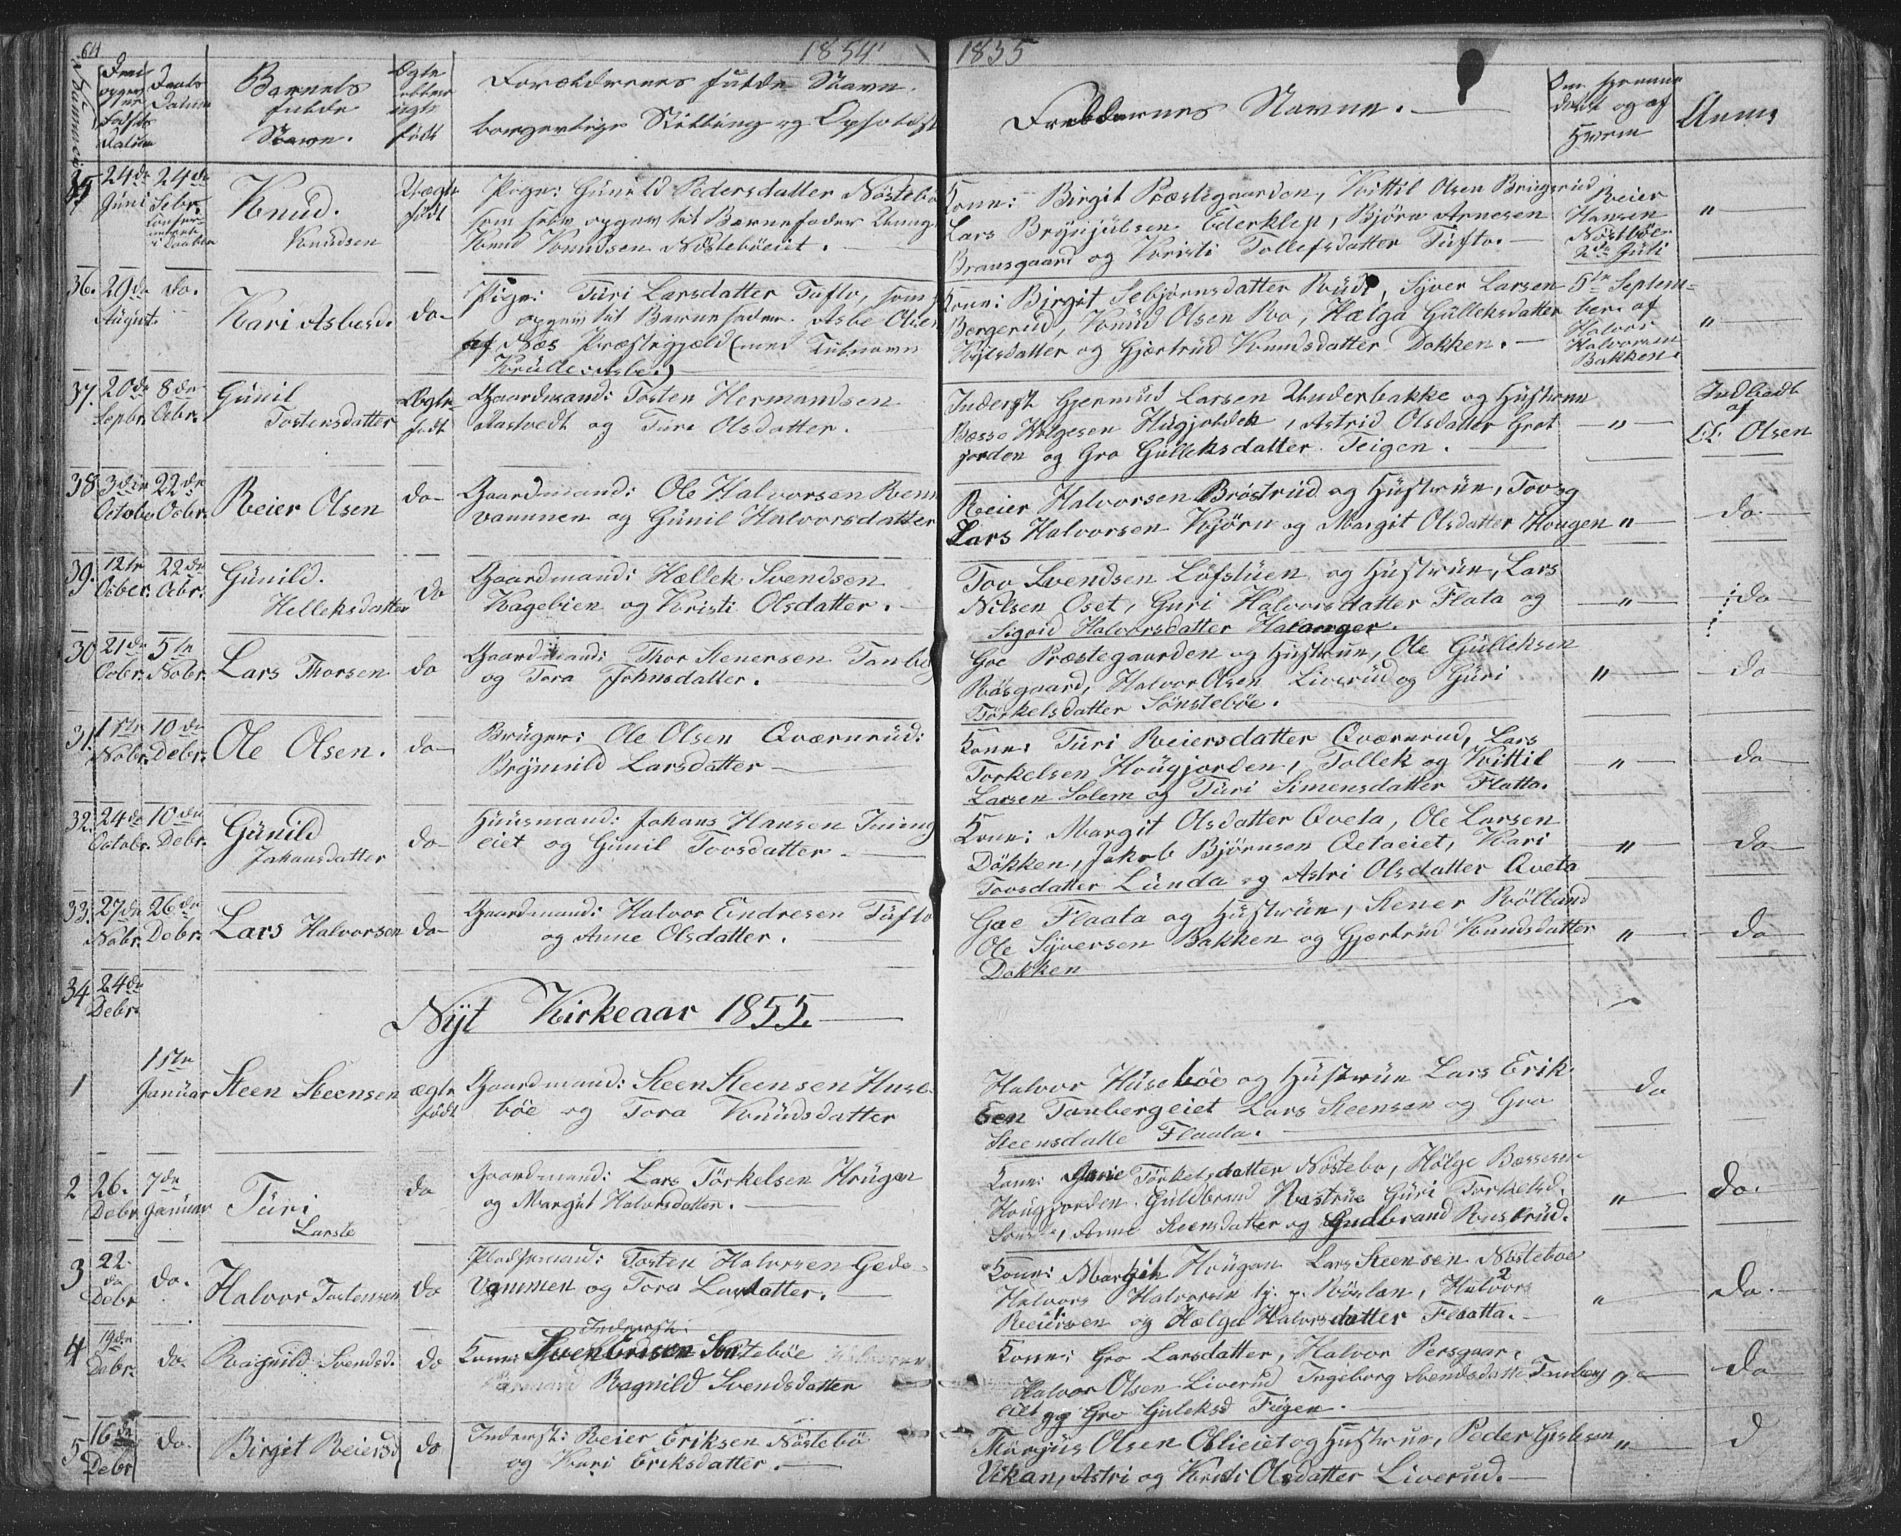 64
1854
1855
Nummer
Den opgivne Fødsels Datum
Daabs Datum
Barnets fulde Navn.
Ægte eller uægte født
Forældrenes fulde Navn
borgerlige Stilling og Opholdst
Faddernes Navne.
Om hjemme døbt og af Hvem
Anm:
35
24de Juni
24de Sebr.
Knud.
Knudsen
Uægte født
Pige: Gunild Pedersdatter Nöstebö
som selv opgev til Barnefader Ungk
Knud Knudsen Nösteböeiet.
Kone: Birgit Præstegaarden, Kittil Olsen Bringerud
Lars Brynjulsen Ederklep, Björn Arnesen
Bransgaard og Kristi Tollefsdatter Tufto.
Reier
Hansen
Nöstböe
2den Juli
"
36.
29de August.
do.
Kari Asbesd.
do
Pige: Turi Larsdatter Tufto, som
opgev til Barnefader. Asbe Olsen
af Næs Præstegjæld (med Tilnavn
Krulle-asbe.)
Kone: Birgit Sebjörnsdatter Rud, Syver Larsen
Bergerud, Knud Olsen Ro, Hælga Gulleksdatter
og Gjertrud Knudsdatter Dokken.
5te Septem-
ber af
Halvor
Halvorsen
Bakken.
"
37.
20de Sepbr.
8de Ocbr.
Gunil
Tostensdatter
Ægte født
Gaardmand: Tosten Hermandsen
Aastvedt og Turi Olsdatter.
Inderst Gjermud Larsen Underbakke og Hustrune
Besse Helgesen Hugjordek, Astrid Olsdatter Grot
jorden og Gro Gulleksdatter Teigen.
"
Indbødt
af
Olsen
38
3die Octobr
22de Ocbr.
Reier Olsen
do
Gaardmand: Ole Halvorsen Renn
vammen og Gunil Halvorsdatter
Reier Halvorsen Bröstrud og Hustrue, Tov og
Lars Halvorsen Kjörn og Margit Olsdatter Hougen
"
do
39.
12te Ocber.
22de Ocbr.
Gunild.
Helleksdatter
do
Gaardmand: Hellek Svendsen
Kagebien og Kristi Olsdatter.
Tov Svendsen Löfstuen og Hustrue, Lars
Nilsen Oset, Guri Halvorsdatter Flata og
Sigrid Halvorsdatter Halanger.
"
do
30
21de Ocbr.
5te Nobr.
Lars Thorsen
do
Gaardmand: Thor Stenersen Tanbe
og Tora Johnsdatter.
Goe Præstegaarden og Hustrue, Ole Gulleksen
Rösgaard, Halvor Olsen Liverud og Guri
Törkelsdatter Sönsteböe.
"
do
31.
1ste Nobr.
10de Debr.
Ole Olsen.
do
Bruger: Ole Olsen Qværnrud:
Brynild Larsdatter
Kone: Turi Reiersdatter Qværnrud, Lars
Torkelsen Hougjorden, Tollek og Kittil
Larsen Solem og Turi Simensdatter Flatta.
"
do
32.
24de Octobr.
10de Debr.
Gunild
Johansdatter
do
Huusmand: Johans Hansen Juving
eiet og Gunil Tovsdatter.
Kone: Margit Olsdatter Qveta, Ole Larsen
Dökken, Jakob Björnsen Qetaeiet, Kari
Tovsdatter Lunda og Astri Olsdatter Qveta
"
do
33.
27de Nobr.
26de Debr.
Lars Halvorsen
do
Gaardmand: Halvor Endresen Tufto
og Anne Olsdatter.
Goe Flaata og Hustrue, Stener Rölland
Ole Syversen Bakken og Gjertrud Knudsdatter
Dokken
"
do
34
24de Debr.
Nyt Kirkeaar 1855.
1
1ste Januar
Steen Steensen
ægte født
Gaardmand: Steen Steensen Huse-
böe og Tora Knudsdatter
Halvor Huseböe og Hustrue Lars Erik
sen Tanbergeiet Lars Steensen og Gro
Steensdatte Flaata.
do
2
26. Debr
7de Januar
Turi
Larste
do
Gaardmand: Lars Törkelsen Hruger
og Margit Halvorsdatter.
Kone: Törkelsdatter Nöstebo, Holge Bessesen
Hougjorden. Guldbrand Rastrue Guri Torkelsd.
Anne Steensdatter og Gudbrand Rustrud.
"
do.
3
22. do Debr
do.
Halvor Tostensen
do
Pladsemand: Tosten Halvorsen Gede-
vammen og Tora Larsdatter.
Kone: Margit Hougen Lars Steensen Nösteböe
Halvors Halvorsen Röslan, Halvor
Reiersen og Hælga Halvorsdatter Flaatta.
"
do.
4
19de Debr.
do.
Ragnild Svendsd.
do
Inderst:
Svend Nösteböe
Ragnild Svendsdatter
Kone: Gro Larsdatter, Halvor Persgaar.
Halvor Olsen Liverud Ingeborg Svendsdatte Tanberg
eiet og Gro Guleksd Tigen.
do
5
16de Debr
do.
Birgit Reiersd
do
Inderst: Reier Eriksen Nöstebö
og Kari Eriksdatter.
Margis Olsen Olieiet og Hustrue, Peder Gislesen
Vikan, Astri og Kristi Olsdatter Liverud.
"
d